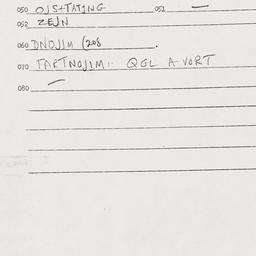 050 OJS+TATING 051 —
052 ZEJN
060 DNOJIM (208 .
070 FARTNOJIM: QGL A VORT
080 —